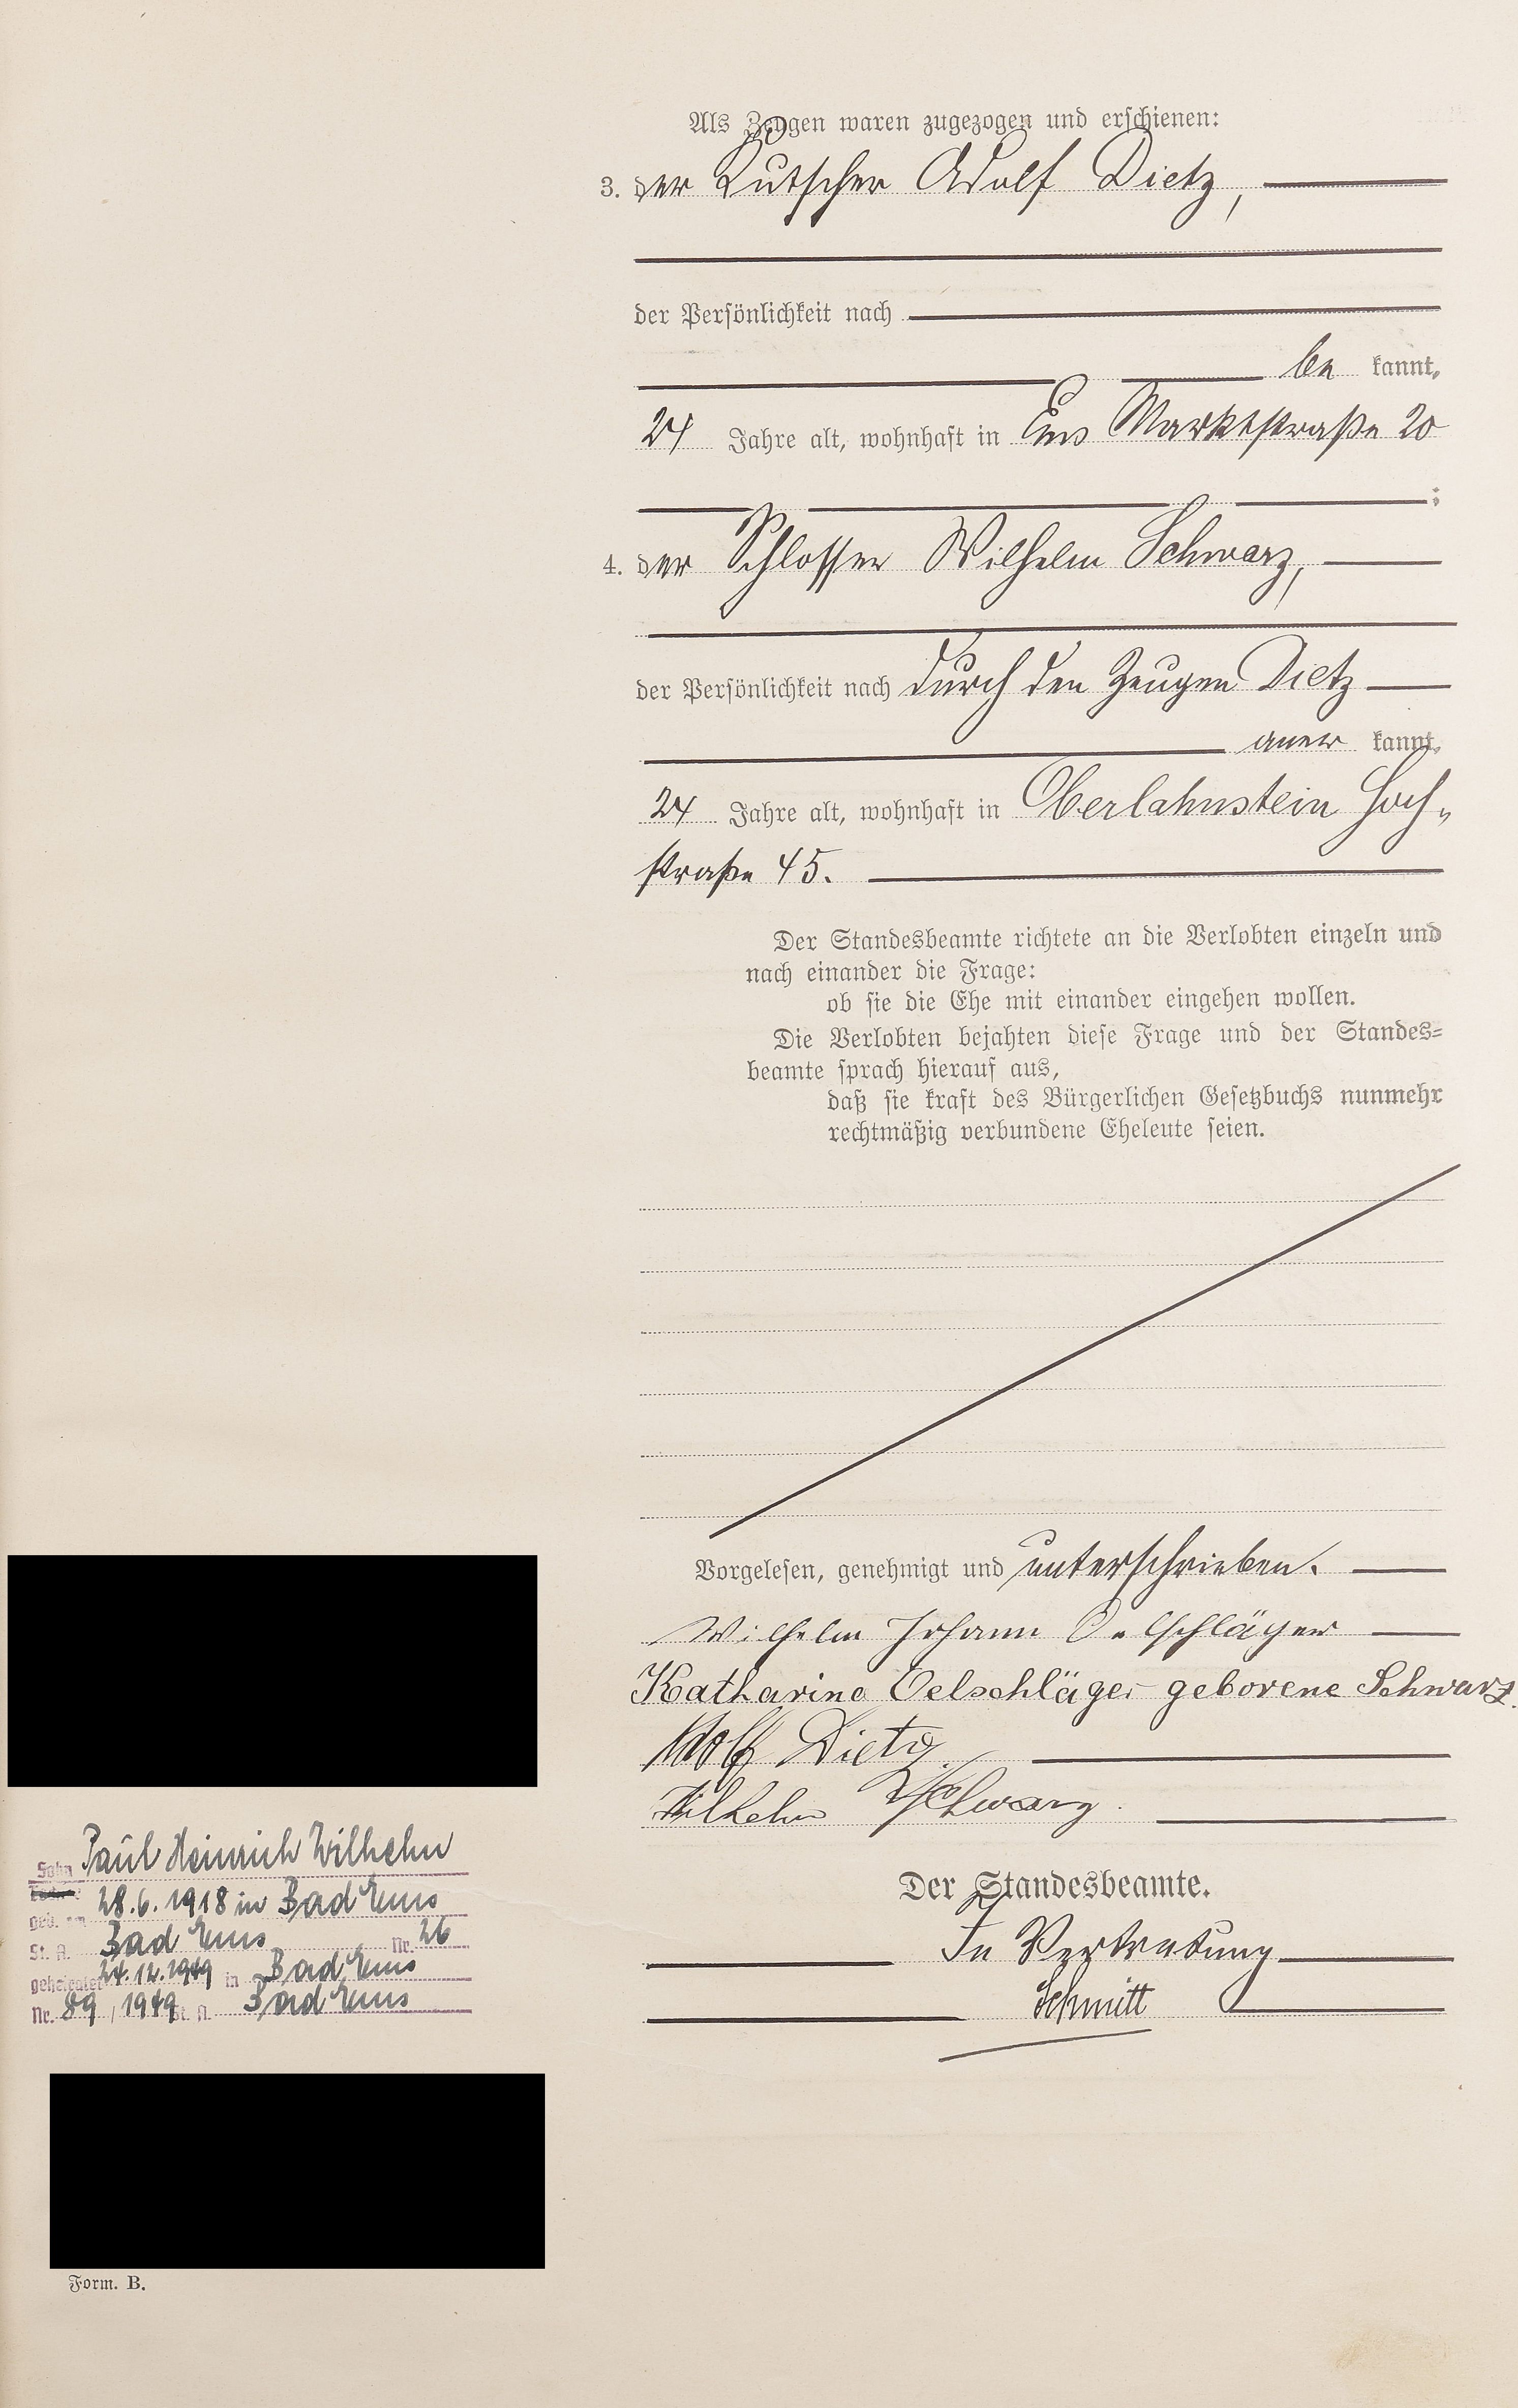 Als Zeugen waren zugezogen und erschienen:
3. der Kutscher Adolf Dietz,
der Persönlichkeit nach
be kannt,
24 Jahre alt, wohnhaft in Ems Marktstraße 20
;
4. der Schlosser Wilhelm Schwarz,
der Persönlichkeit nach durch den Zeugen Dietz
aner kannt,
24 Jahre alt, wohnhaft in Oberlahnstein Hoch-
straße 45.
Der Standesbeamte richtete an die Verlobten einzeln und
nach einander die Frage:
ob sie die Ehe mit einander eingehen wollen.
Die Verlobten bejahten diese Frage und der Standes-
beamte sprach hierauf aus,
daß sie kraft des Bürgerlichen Gesetzbuchs nunmehr
rechtmäßig verbundene Eheleute seien.
Vorgelesen, genehmigt und unterschrieben.
Wilhelm Johann Oelschläger
Katharina Oelschläger geborene Schwarz.
Adolf Dietz
Wilhelm Schwarz.
Der Standesbeamte.
In Vertretung
Schmitt
Sohn Paul Heinrich Wilhelm
geb. am 28.6.1918 in Bad Ems
St. A. Bad Ems Nr. 26
geheiratet 24.12.1949 in Bad Ems
Nr. 89 / 1949 St. A. Bad Ems
Form. B.